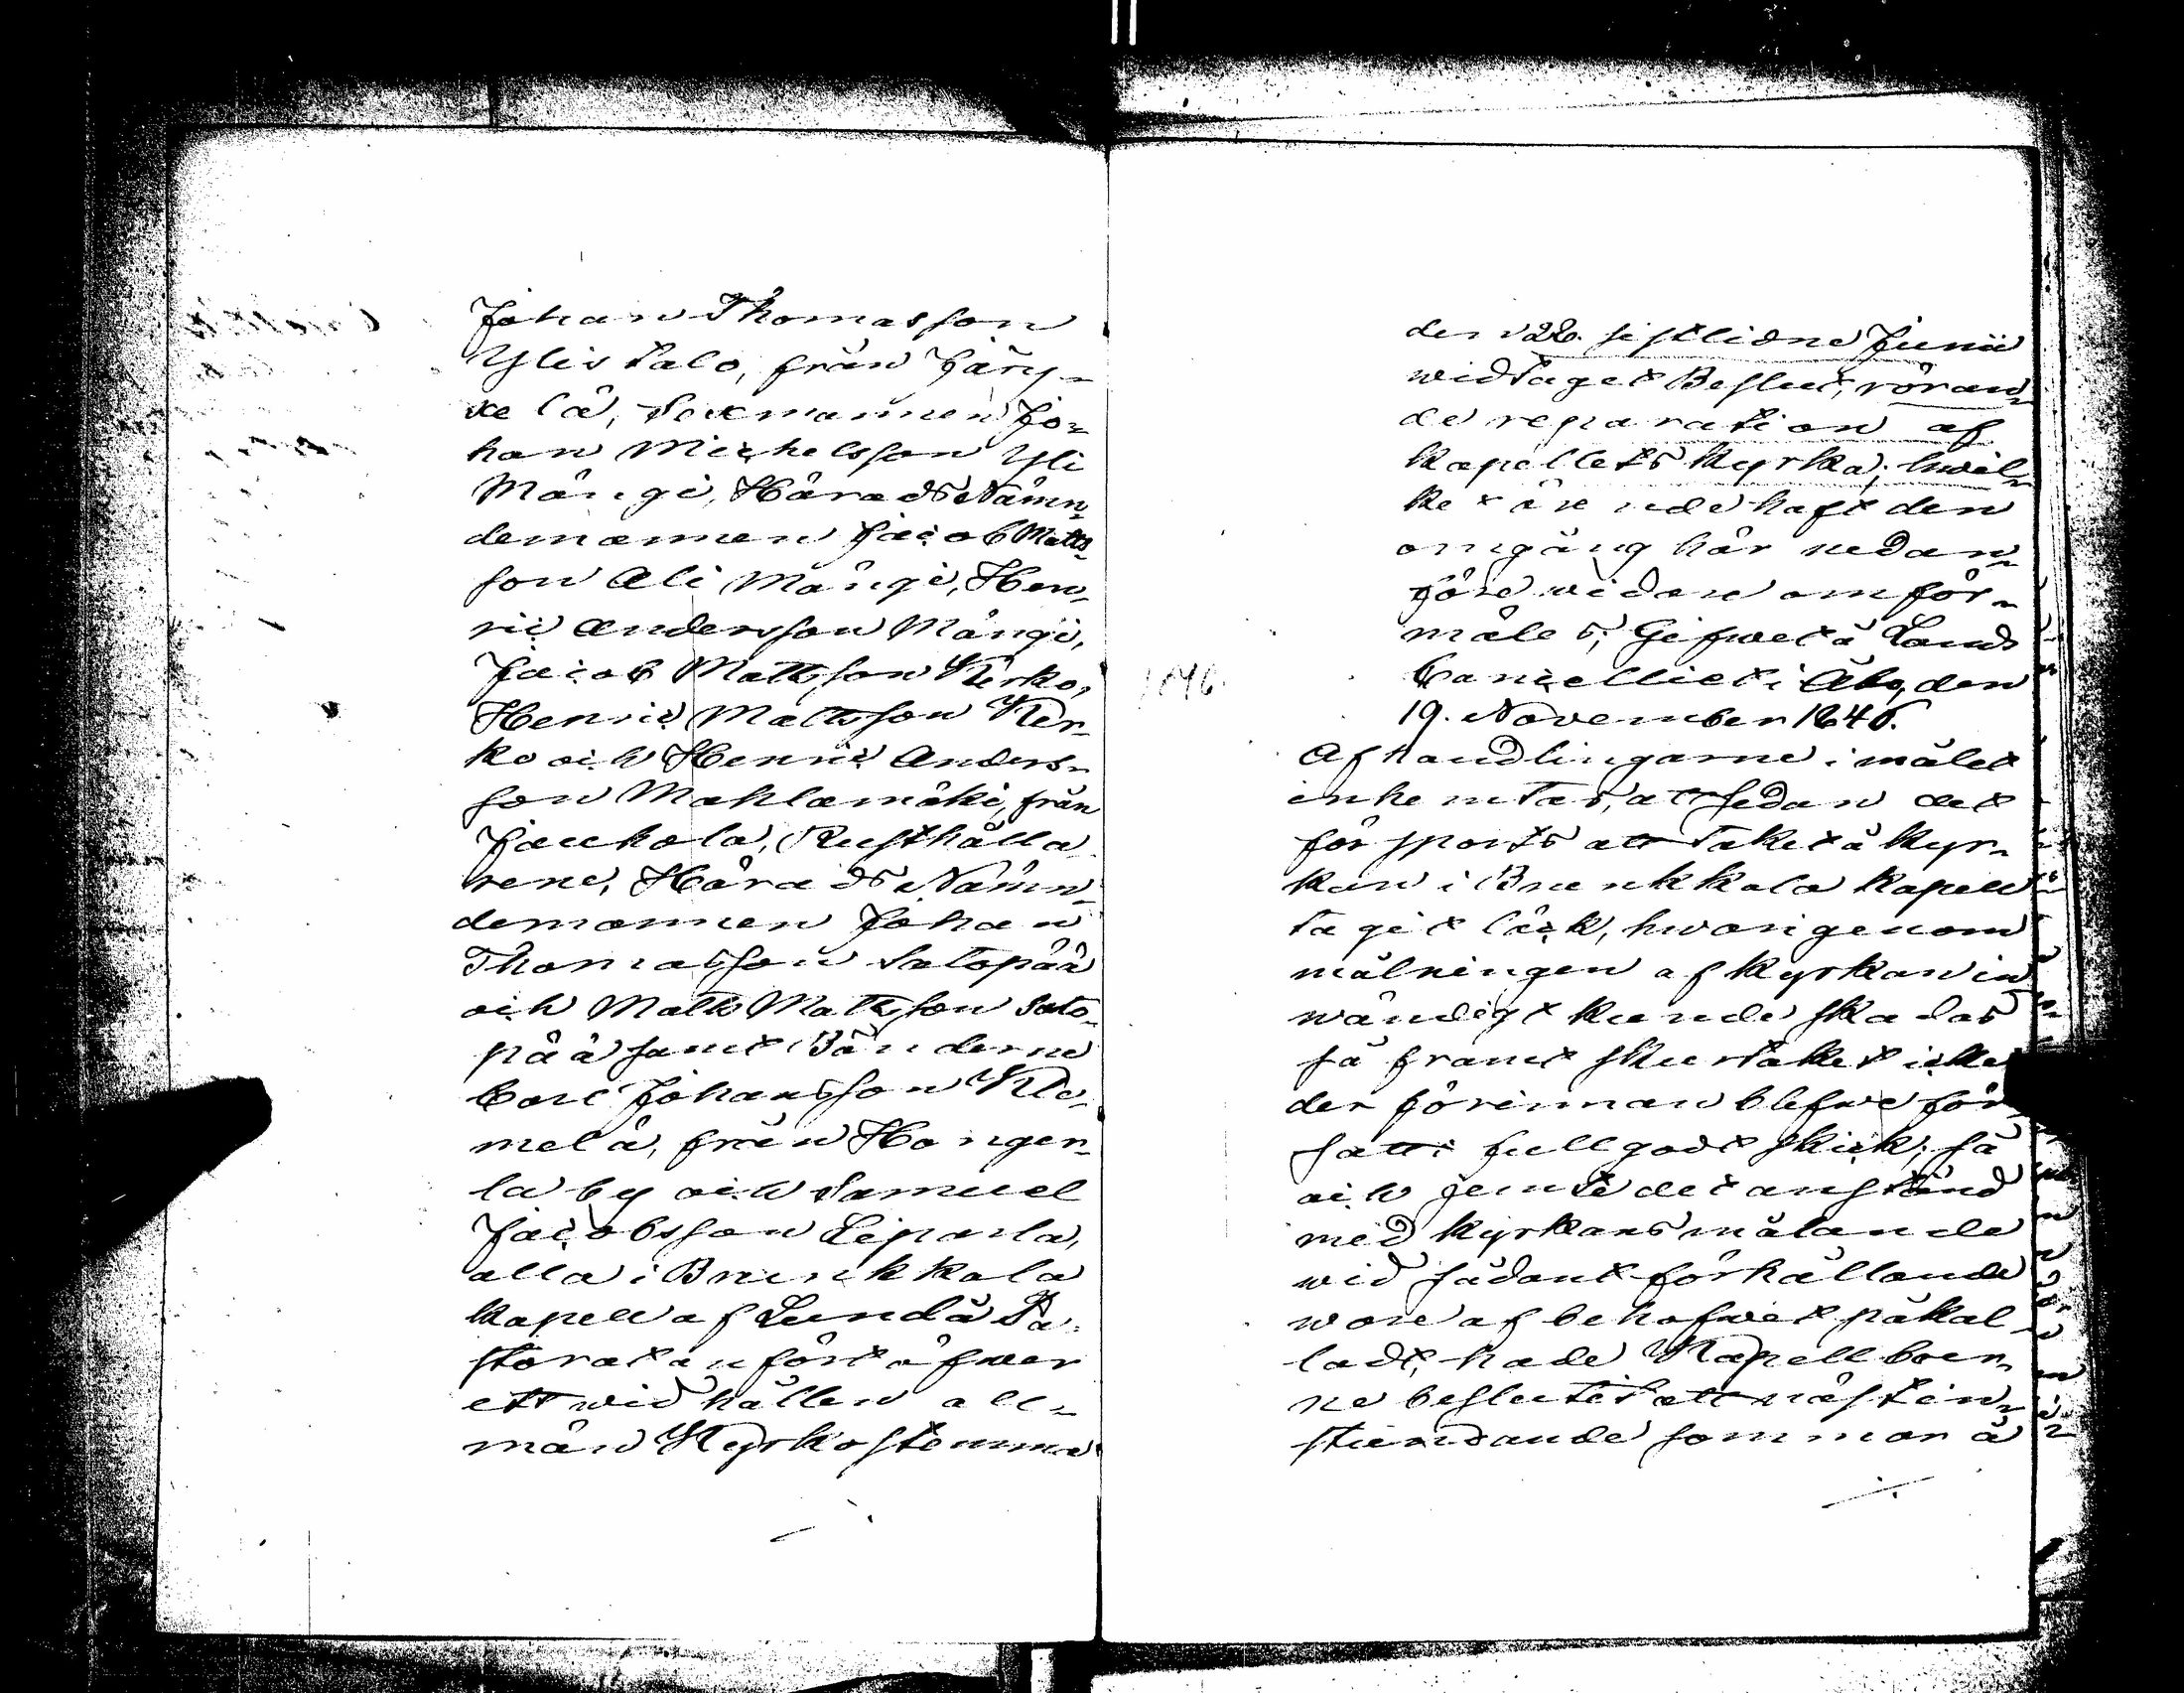 Johan Thomasson
Ylistalo, från Järy-
kelä, Sexmannen Jo-
han Michelsson Yli
Mängi, Härads Nämn-
demannen Jacob Matts-
son Ali Mängi, Hen-
ric Andersson Mängi,
Jacob Mattsson Kirko,
Henric Mattsson Kir-
ko och Henric Anders-
son Mahlamäki, från
Jauhola, Rusthålla-
rene, Härads Nämn-
demannen Johan
Thomasson Satopää
och Matts Mattsson Sato-
pää samt Bönderne
Carl Johansson Klo-
melä, från Hongen-
la by och Samuel
Jacobsson Lepola,
alla i Brunkkala
kapell af Lundå Pa-
storat anfört öfver
ett vid hållen all-
män Kyrkostemma
den 28. sistlidne Junii
widtaget Beslut, röran-
de reparation af
kapellets kyrka; hwil-
ket ärende haft den
omgång här nedan-
före widare omför-
mäles; Gifwet å Lands
Cancelliet i Åbo, den
19. November 1846.
1846.
Af handlingarne i målet
inhemtas, att sedan det
försports att taket å kyr-
kan i Brunkkala kapell
tagit läck, hwarigenom
målningen af kyrkan in-
wändigt kunde skadas
så framt skurtaket icke
der förinnan blefwe för-
satt i fullgodt skick; så
och jemte det anstånd
med kyrkans målande
wid sådant förhållande
wore af behofwet påkal-
ladt, hade Kapellboer-
ne beslutit att nästin-
stundande sommar å